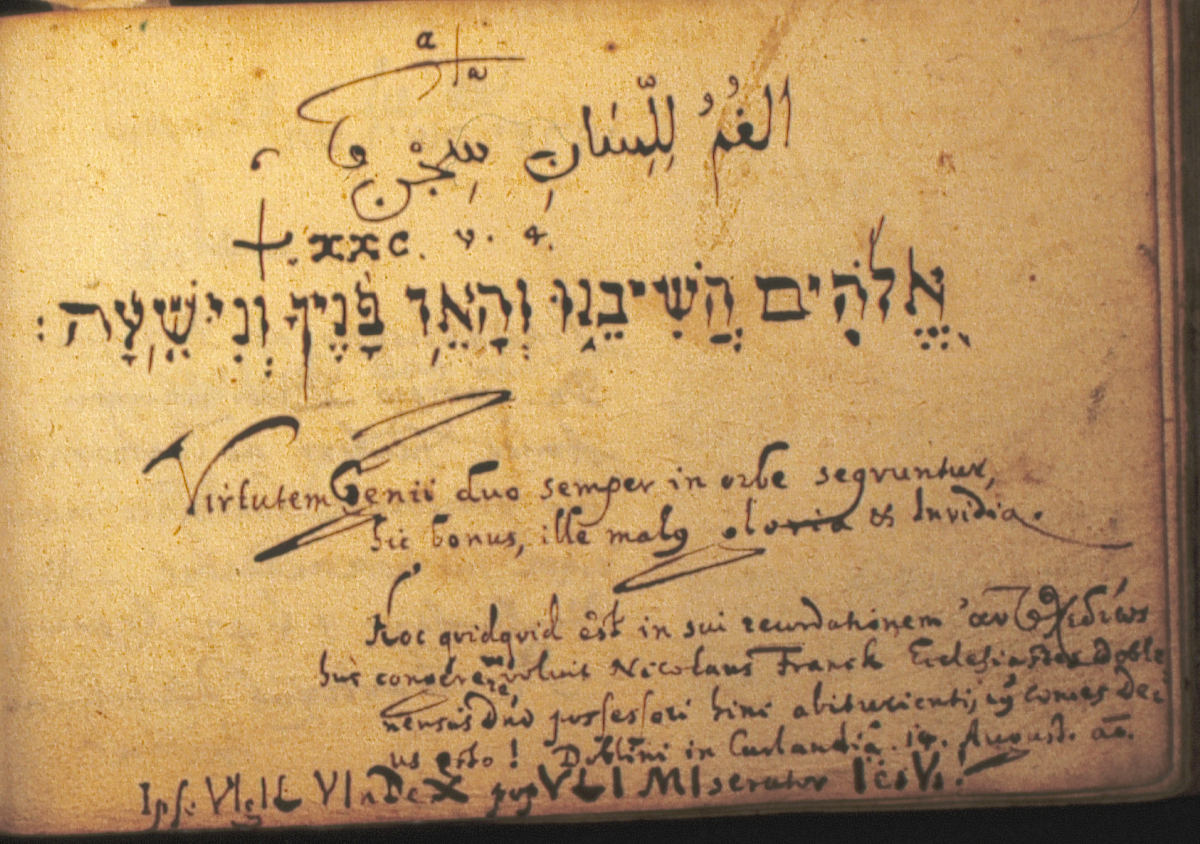 الفمُ لِلّسَانِ سِجْنٌ
ψ. xxc. v. 4.
אֱלֹהִים הֲשִׁיבֵנוּ וְהָאֵר פָּנֶיךָ וְנִיוָּשֵׁעָה׃
Virtutem Genii duo semper in orbe seqvuntur,
hic bonus, ille malg gloria & Invidia.
Hoc qvidqvid est in sui recordationem
huc voluit Nicolaus Franck Ecclesiastes Doble
nensis Dño possessori hinc abiturienti, cui comes De-
us esto! Doblini in Curlandiâ. 14. August. aō.
Ipse VIgIL VInDeX popVLI MIserator IesVs!